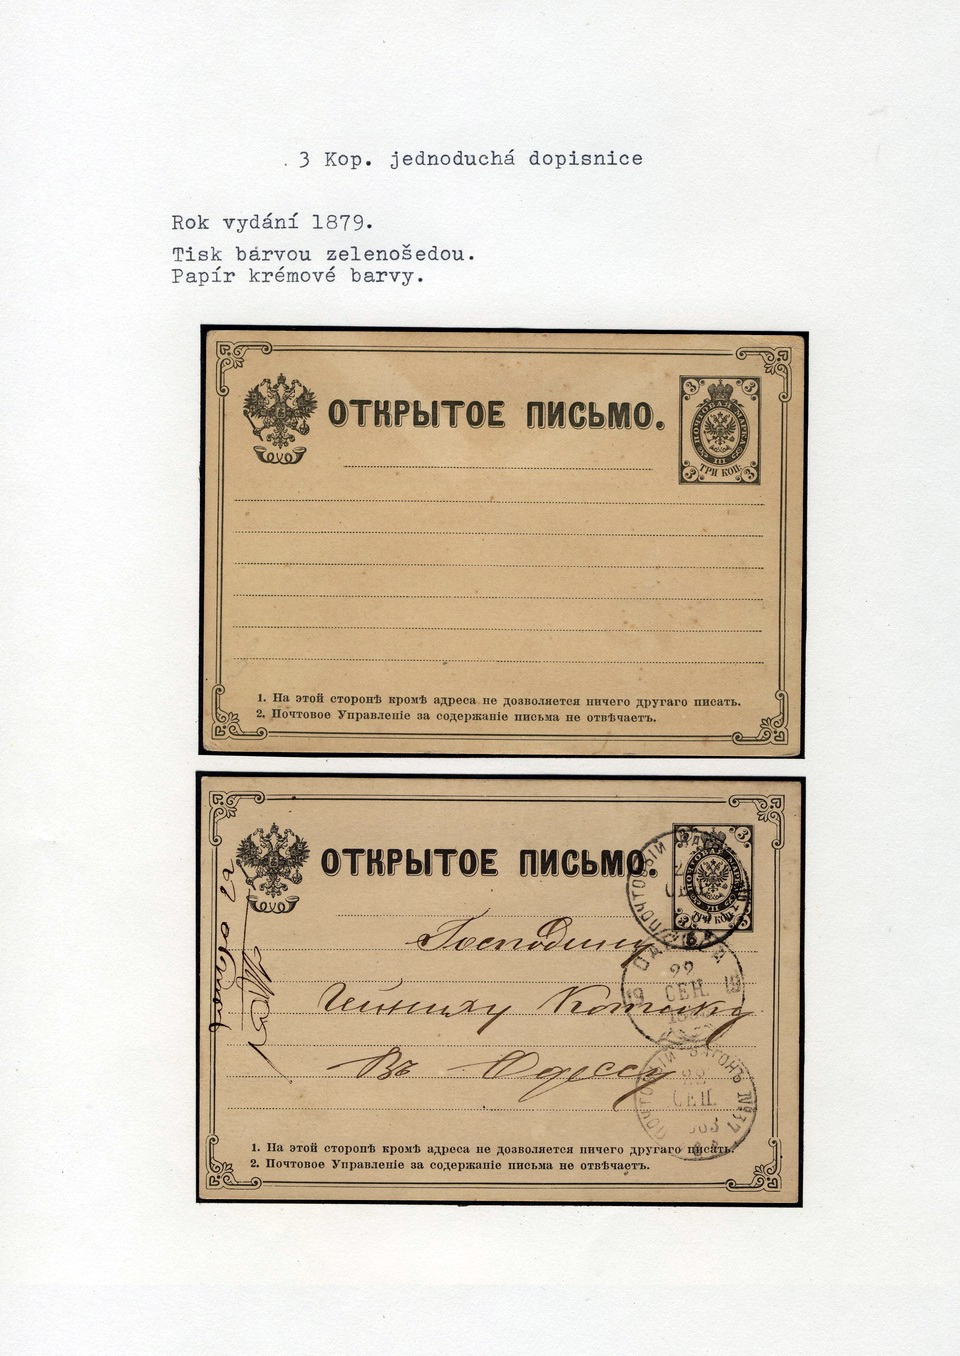 3 Kop. jednoduchá dopisnice
Rok vydání 1879.
Tisk barvou zelenošedou.
Papír krémové barvy.
ОТКРЫТОЕ ПИСЬМО.
3 3
ПОЧТОВАЯ МАРКА
ТРИ КОП.
3 3
1. На этой сторонѣ кромѣ адреса не дозволяется ничего другаго писать.
2. Почтовое Управленіе за содержаніе письма не отвѣчаетъ.
ОТКРЫТОЕ ПИСЬМО.
3
ТРИ КОП.
ПОЧТОВЫЙ
Господину
ОДЕССА
22
СЕН.
Котику
Въ Одессу
ПОЧТОВЫЙ ВАГОНЪ №37
22
СЕН.
1. На этой сторонѣ кромѣ адреса не дозволяется ничего другаго писать.
2. Почтовое Управленіе за содержаніе письма не отвѣчаетъ.